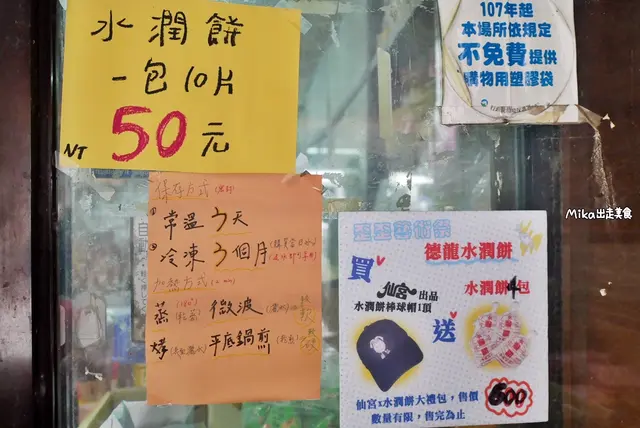 水潤餅
一包10片
NT 50元
107年起
本場所依規定
不免費提供
購物用塑膠袋
Mika出走美食
保存方式
① 常溫 3天
② 冷凍 3個月
加熱方式
蒸 微波
烤 平底鍋煎
德龍水潤餅
買
仙宮 出品
水潤餅棒球帽1頂
送
水潤餅4包
仙宮x水潤餅大禮包，售價
600
數量有限，售完為止